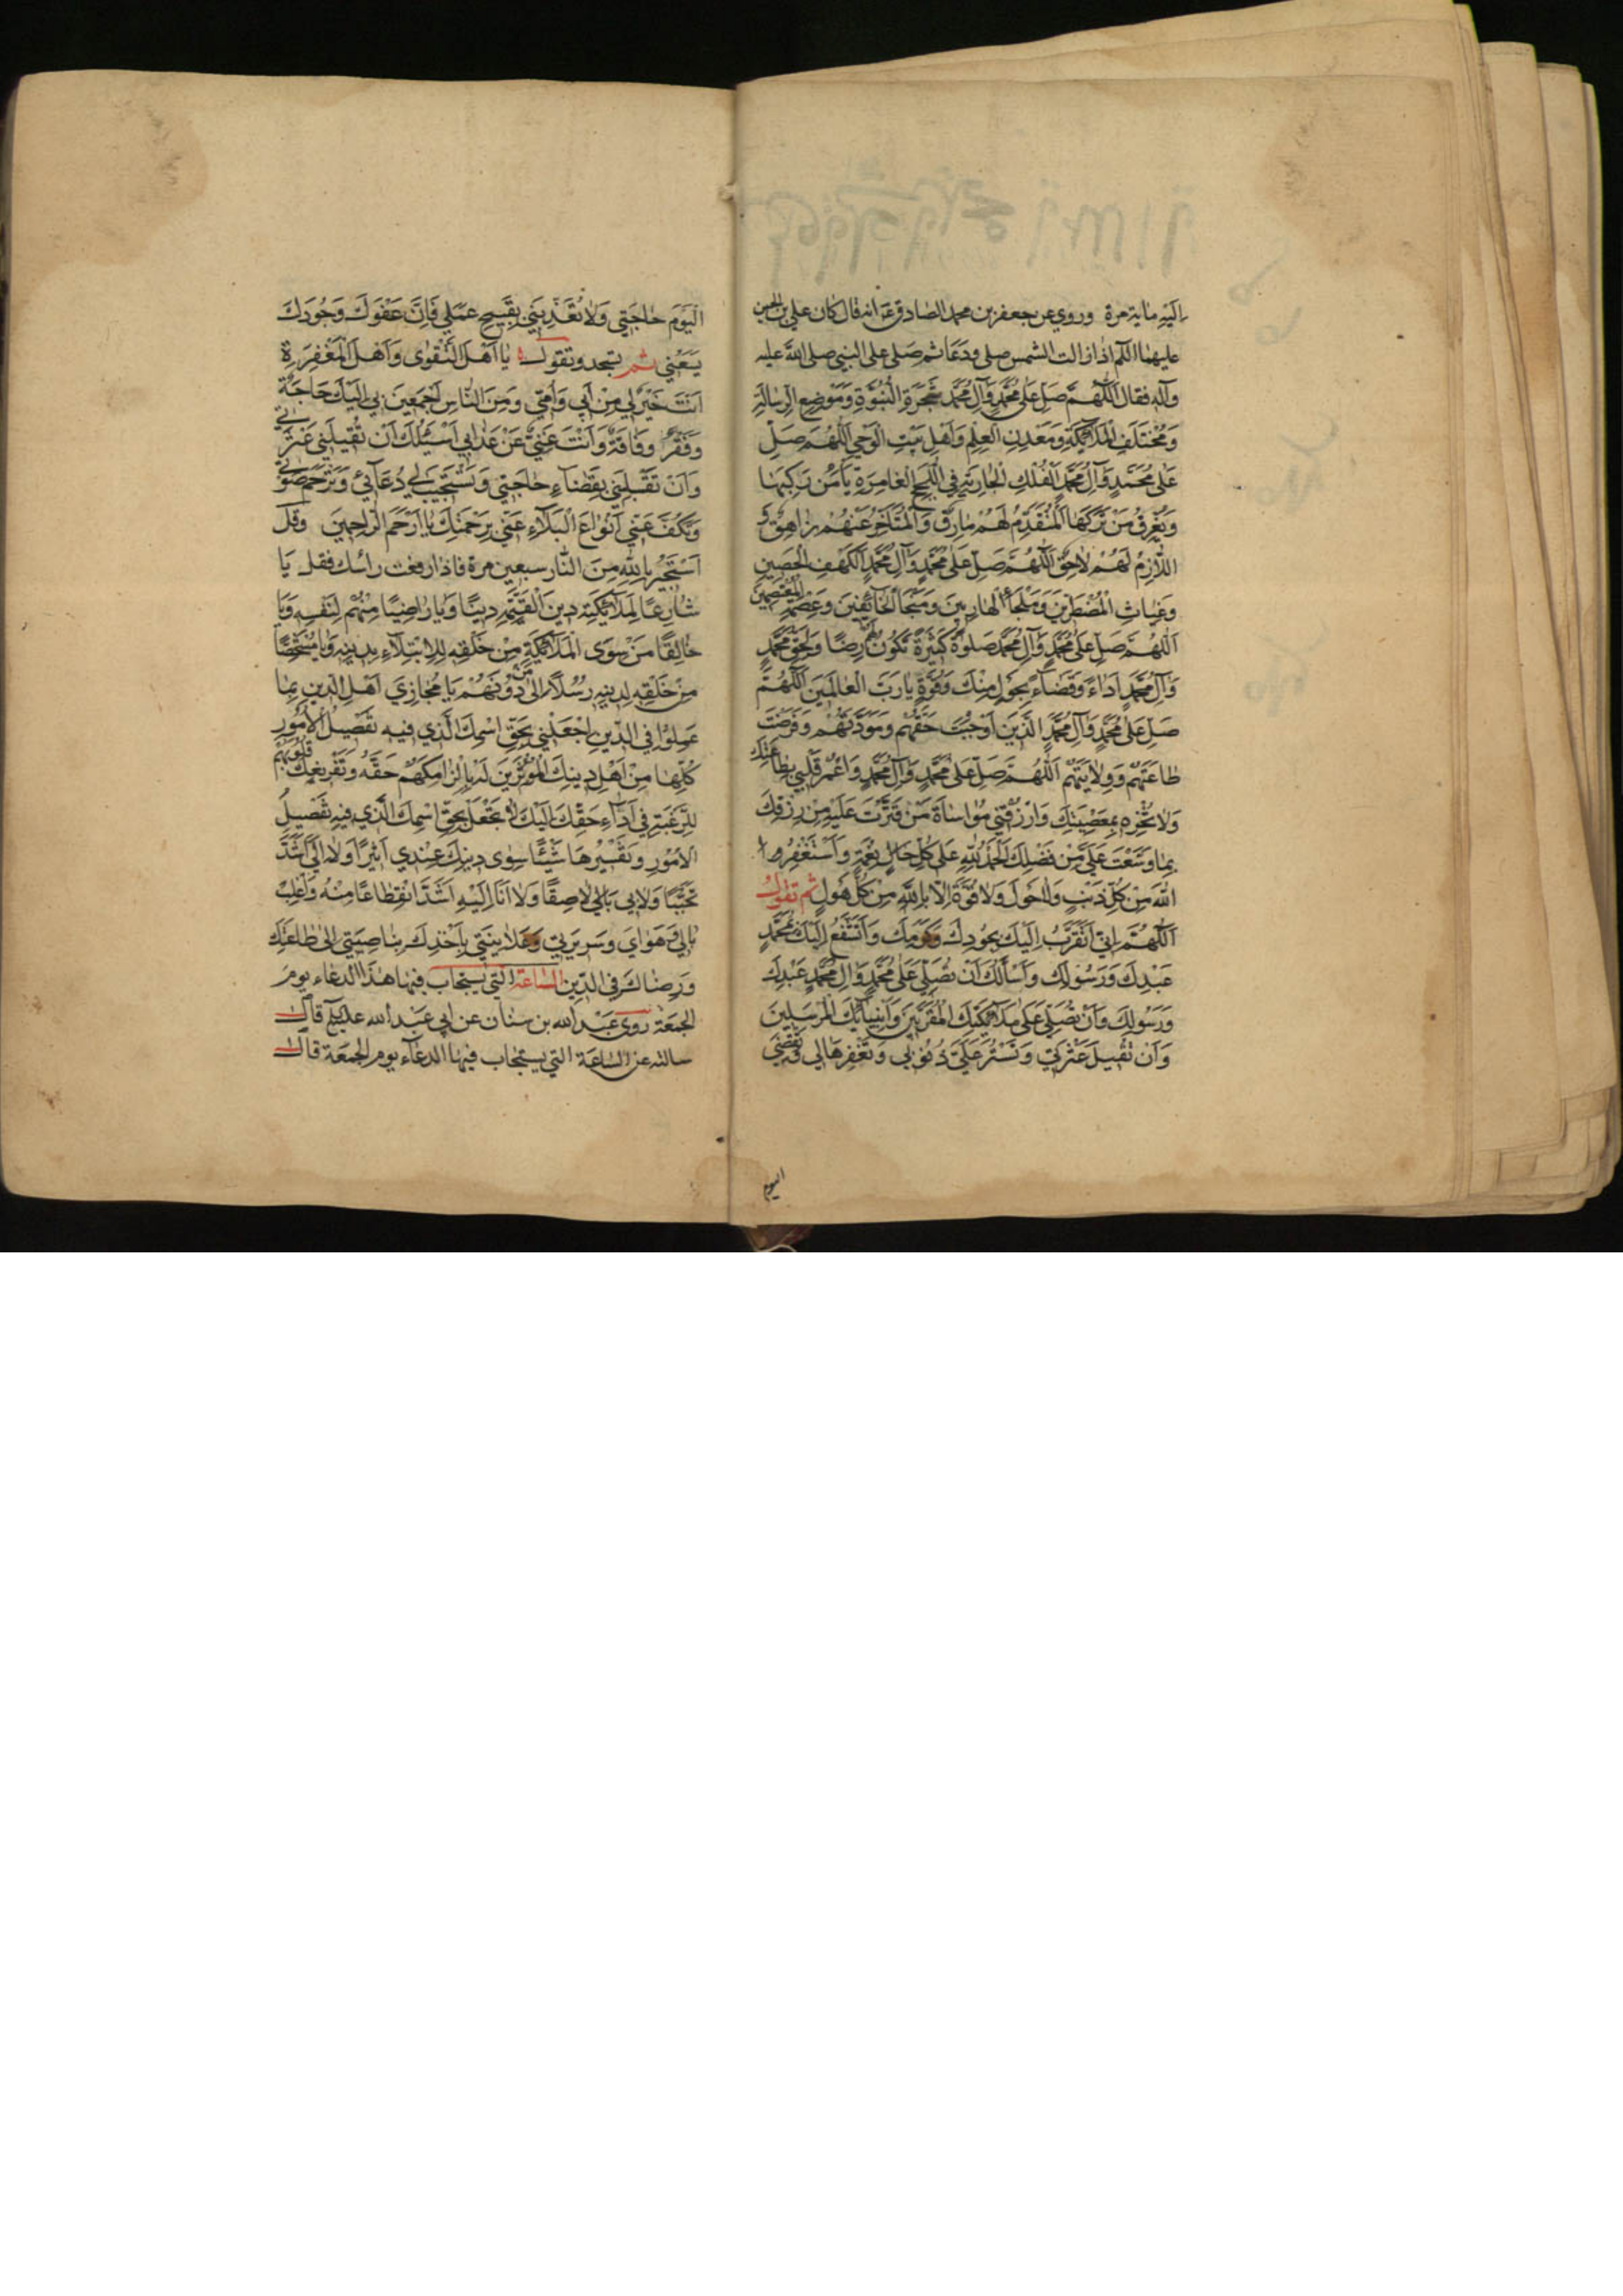 اِلَيْهِ مائة مرة وروي عن جعفر بن محمد الصادق انه قال كان علي بن الحسين
عليهما السلم اذا زالت الشمس صلى ودعا ثم صلى على النبي صلى الله عليه
وآله فقال اَللّهُمَّ صَلِّ عَلى مُحَمَّدٍ وَآلِ مُحَمَّدٍ شَجَرَةِ النُّبُوَّةِ وَمَوْضِعِ الرِّسالَةِ
وَمُخْتَلَفِ الْمَلائِكَةِ وَمَعْدِنِ الْعِلْمِ وَاَهْلِ بَيْتِ الْوَحْيِ اَللّهُمَّ صَلِّ
عَلى مُحَمَّدٍ وَآلِ مُحَمَّدٍ الْفُلْكِ الْجارِيَةِ فِي اللُّجَجِ الْغامِرَةِ يَأْمَنُ مَنْ رَكِبَها
وَيَغْرَقُ مَنْ تَرَكَهَا الْمُتَقَدِّمُ لَهُمْ مارِقٌ وَالْمُتَأَخِّرُ عَنْهُمْ زاهِقٌ وَ
اللاّزِمُ لَهُمْ لاحِقٌ اَللّهُمَّ صَلِّ عَلى مُحَمَّدٍ وَآلِ مُحَمَّدٍ الْكَهْفِ الْحَصينِ
وَغِياثِ الْمُضْطَرّينَ وَمَلْجَأِ الْهارِبينَ وَمَنْجَا الْخائِفينَ وَعِصْمَةِ الْمُعْتَصِمينَ
اَللّهُمَّ صَلِّ عَلى مُحَمَّدٍ وَآلِ مُحَمَّدٍ صَلوةً كَثيرَةً تَكُونُ لَهُمْ رِضًا وَلِحَقِّ مُحَمَّدٍ
وَآلِ مُحَمَّدٍ اَداءً وَقَضاءً بِحَوْلٍ مِنْكَ وَقُوَّةٍ يا رَبَّ الْعالَمينَ اَللّهُمَّ
صَلِّ عَلى مُحَمَّدٍ وَآلِ مُحَمَّدٍ الَّذينَ اَوْجَبْتَ حَقَّهُمْ وَمَوَدَّتَهُمْ وَفَرَضْتَ
طاعَتَهُمْ وَوِلايَتَهُمْ اَللّهُمَّ صَلِّ عَلى مُحَمَّدٍ وَآلِ مُحَمَّدٍ وَاعْمُرْ قَلْبي بِطاعَتِكَ
وَلا تُخْزِهِ بِمَعْصِيَتِكَ وَارْزُقْني مُواساةَ مَنْ قَتَّرْتَ عَلَيْهِ مِنْ رِزْقِكَ
بِما وَسَّعْتَ عَلَيَّ مِنْ فَضْلِكَ اَلْحَمْدُ لِلّهِ عَلى كُلِّ حالٍ نِعْمَةٍ وَاَسْتَغْفِرُ
اللهَ مِنْ كُلِّ ذَنْبٍ وَلا حَوْلَ وَلا قُوَّةَ اِلاّ بِاللهِ مِنْ كُلِّ هَوْلٍ ثم تقول
اَللّهُمَّ اِنّي اَتَقَرَّبُ اِلَيْكَ بِجُودِكَ وَكَرَمِكَ وَاَتَشَفَّعُ اِلَيْكَ بِمُحَمَّدٍ
عَبْدِكَ وَرَسُولِكَ وَاَسْأَلُكَ اَنْ تُصَلِّيَ عَلى مُحَمَّدٍ وَآلِ مُحَمَّدٍ عَبْدِكَ
وَرَسُولِكَ وَاَنْ تُصَلِّيَ عَلى مَلائِكَتِكَ الْمُقَرَّبينَ وَاَنْبِيائِكَ الْمُرْسَلينَ
وَاَنْ تُقيلَ عَثْرَتي وَتَسْتُرَ عَلَيَّ ذُنُوبي وَتَغْفِرَها لي وَتَقْضِيَ
اليوم
الْيَوْمَ حاجَتي وَلا تُعَذِّبَني بِقَبيحِ عَمَلي فَاِنَّ عَفْوَكَ وَجُودَكَ
يَسَعُني ثم تسجد وتقول يا اَهْلَ التَّقْوى وَاَهْلَ الْمَغْفِرَةِ
اَنْتَ خَيْرٌ لي مِنْ اَبي وَاُمّي وَمِنَ النّاسِ اَجْمَعينَ بي اِلَيْكَ حاجَةٌ
وَفَقْرٌ وَفاقَةٌ وَاَنْتَ غَنِيٌّ عَنْ عَذابي اَسْئَلُكَ اَنْ تُقيلَني عَثْرَتي
وَاَنْ تَقْلِبَني بِقَضاءِ حاجَتي وَتَسْتَجيبَ لي دُعائي وَتَرْحَمَ صَوْتي
وَتَكُفَّ عَنّي اَنْواعَ الْبَلاءِ عَنّي بِرَحْمَتِكَ يا اَرْحَمَ الرّاحِمينَ وقل
اَسْتَجيرُ بِاللهِ مِنَ النّارِ سبعين مرة فاذا رفعت رأسك فقل يا
شارِعًا لِمَلائِكَتِهِ دينَ الْقَيِّمَةِ دينًا وَيا راضِيًا مِنْهُمْ لِنَفْسِهِ وَيا
خالِقًا مَنْ سِوَى الْمَلائِكَةِ مِنْ خَلْقِهِ لِلاِبْتِلاءِ بِدينِهِ وَيا مُسْتَخِصًّا
مِنْ خَلْقِهِ لِدينِهِ رُسُلاً اِلى مَنْ دُونَهُمْ يا مُجازِيَ اَهْلِ الدّينِ بِما
عَمِلُوا فِي الدّينِ اِجْعَلْني بِحَقِّ اسْمِكَ الَّذي فيهِ تَفْصيلُ الاُمُورِ
كُلِّها مِنْ اَهْلِ دينِكَ الْمُؤْثَرينَ لَهُ بِاِلْزامِكَهُمْ حَقَّهُ وَتَفْريغِكَ قُلُوبَهُمْ
لِلرَّغْبَةِ في اَداءِ حَقِّكَ اِلَيْكَ لا تَجْعَلْ بِحَقِّ اسْمِكَ الَّذي فيهِ تَفْصيلُ
الاُمُورِ وَتَفْسيرُها شَيْئًا سِوى دينِكَ عِنْدي اَثيرًا وَلا اِلَيَّ اَشَدَّ
تَحَبُّبًا وَلا بي لاصِقًا وَلا اَنَا اِلَيْهِ اَشَدَّ انْقِطاعًا مِنْهُ وَاغْلِبْ
بالي وَهَوايَ وَسَريرَتي وَعَلانِيَتي بِاَخْذِكَ بِناصِيَتي اِلى طاعَتِكَ
وَرِضاكَ فِي الدّينِ الساعة التي يستجاب فيها هذا الدعاء يوم
الجمعة روى عبد الله بن سنان عن ابي عبد الله عليلم قال
سالته عن الساعة التي يستجاب فيها الدعاء يوم الجمعة قال